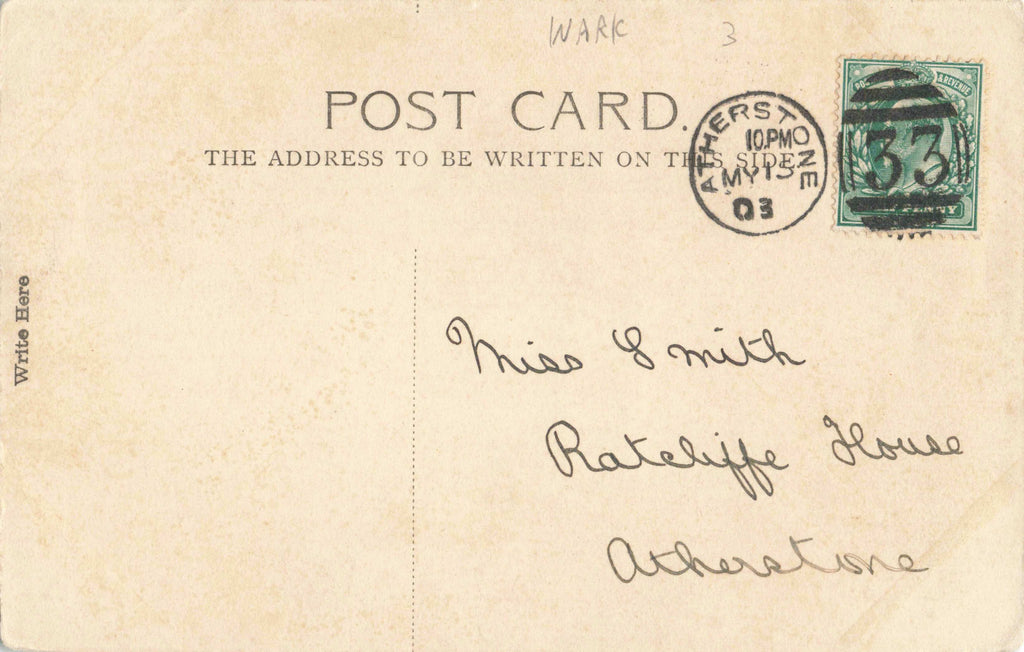 WARK 3
POST CARD.
THE ADDRESS TO BE WRITTEN ON THIS SIDE.
ATHERSTONE
10.PM
MY 13
03
& REVENUE
33
Write Here
Miss Smith
Ratcliffe House
Atherstone